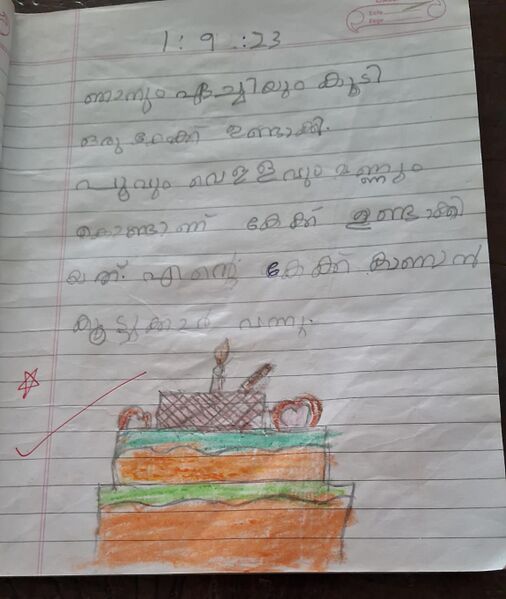 Date
Page
1:9.:23
ഞാനും ചേച്ചിയും കൂടി
ഒരു കേക്ക് ഉണ്ടാക്കി.
പൂവും വെള്ളവും മണ്ണും
കൊണ്ടാണ് കേക്ക് ഉണ്ടാക്കി
യത്. എന്റെ കേക്ക് കാണാൻ
കൂട്ടുകാർ വന്നു.